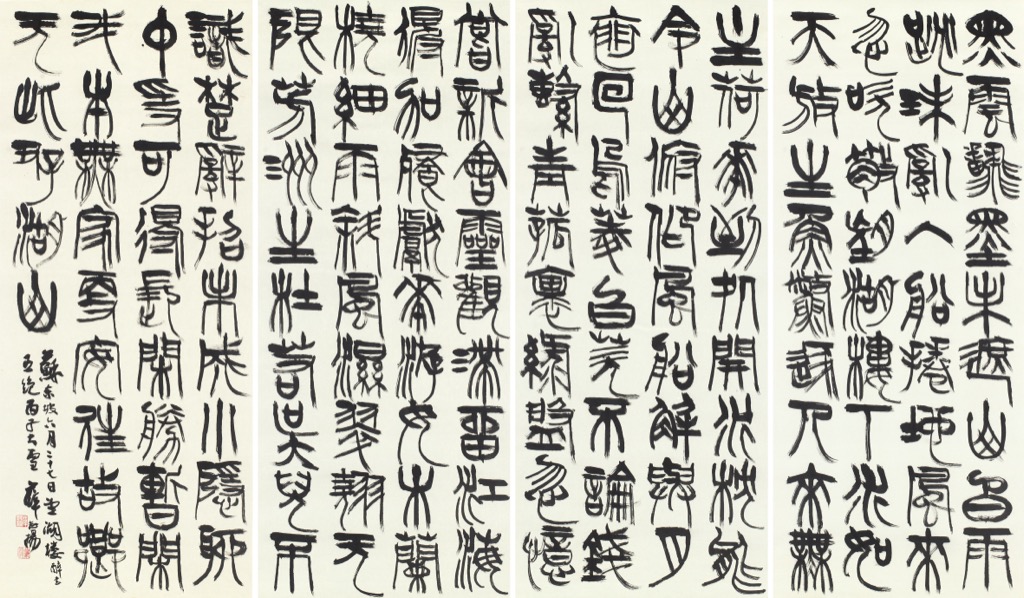 黑雲翻墨未遮山白雨
跳珠亂入船捲地風來
忽吹散望湖樓下水如
天放生魚鱉逐人來無
主荷花到處開水枕能
令山俯仰風船解與月
裴回烏菱白芡不論錢
亂繫青菰裹綠盤忽憶
嘗新會靈觀滯留江海
得加餐獻花游女木蘭
橈細雨斜風濕翠翹无
限芳洲生杜若吳兒不
識楚辭招未成小隱聊
中隱可得長閑勝暫閑
我本無家更安往故鄉
无此好湖山
蘇東坡六月二十七日望湖樓醉書
五絕丙子大雪